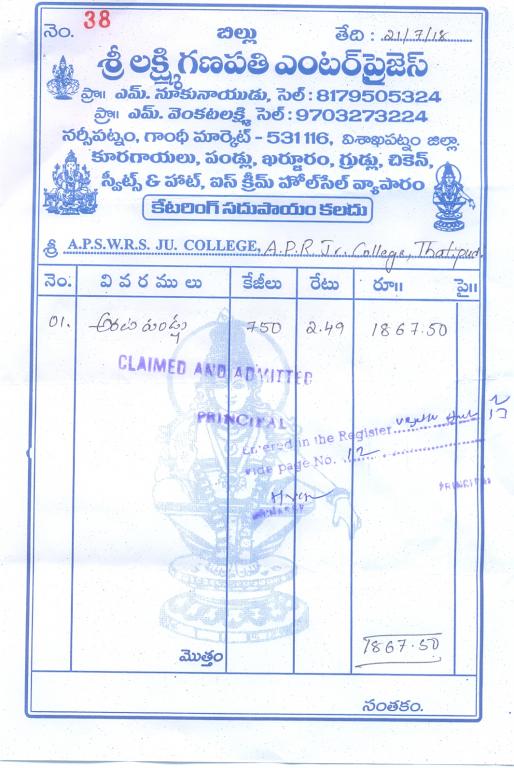 నెం. 38 బిల్లు తేది : 21/7/18
శ్రీ లక్ష్మి గణపతి ఎంటర్‌ప్రైజెస్
ప్రొ॥ ఎమ్. నూకునాయుడు, సెల్ : 8179505324
ప్రొ॥ ఎమ్. వెంకటలక్ష్మి, సెల్ : 9703273224
నర్సీపట్నం, గాంధీ మార్కెట్ - 531116, విశాఖపట్నం జిల్లా
కూరగాయలు, పండ్లు, ఖర్జూరం, గ్రుడ్లు, చికెన్,
స్వీట్స్ & హాట్, ఐస్ క్రీమ్ హోల్‌సేల్ వ్యాపారం
కేటరింగ్ సదుపాయం కలదు
శ్రీ A.P.S.W.R.S. JU. COLLEGE, A.P.R Jr. College, Thatipudi
నెం. వివరములు కేజీలు రేటు రూ॥ పై॥
01. అరటి పండ్లు 750 2.49 1867.50
CLAIMED AND ADMITTED
PRINCIPAL
Entered in the Register
vide page No. 12
PRINCIPAL
మొత్తం 1867.50
సంతకం.